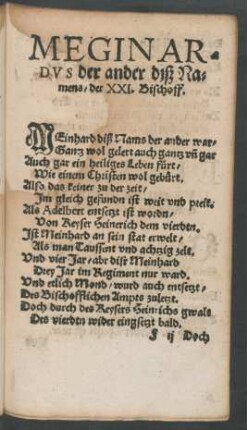 MEGINAR-
DVS der ander diß Na-
mens/ der XXI. Bischoff.
MEinhard diß Nams der ander war/
Gantz wol gelert auch gantz vñ gar
Auch gar ein heiliges Leben fürt/
Wie einem Christen wol gebürt.
Also das keiner zu der zeit/
Im gleich gefunden ist weit vnd preit.
Als Adelbert entsetzt ist wordn/
Von Keyser Heinrich dem vierdtn.
Ist Meinhard an sein stat erwelt/
Als man Tausent vnd achtzig zelt.
Vnd vier Jar/ abr dist Meinhard
Drey Jar im Regiment nur ward.
Vnd etlich Mond/ wurd auch entsetzt/
Des Bischofflichen Ampts zuletzt.
Doch durch des Keysers Heinrichs gwalt
Des vierdtn wider eingsetzt bald.
F ij Doch